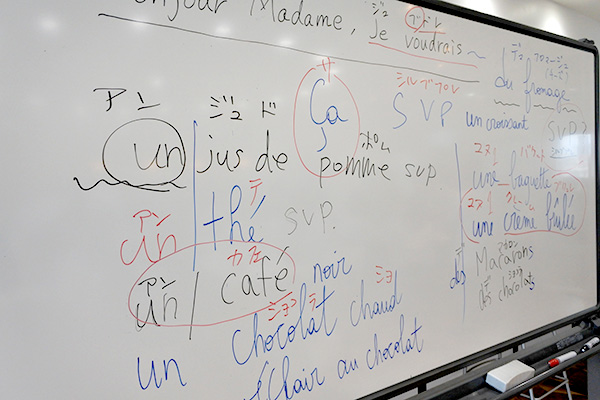 onjour Madame, je voudrais
ジュ ブドレ
サ
Ça
シルブプレ
SVP
アン ジュ ド ポム
un jus de pomme svp.
アン テ
un thé SVP.
アン カフェ
un café noir
ショコラ ショ
un chocolat chaud
éclair au chocolat
デュ フロマージュ
du fromage
un croissant SVP?
ユヌ バゲット
une baguette
ユヌ クレーム ブルレ
une crème brûlée
デ マカロン
des Macarons
デ ショコラ
des chocolats